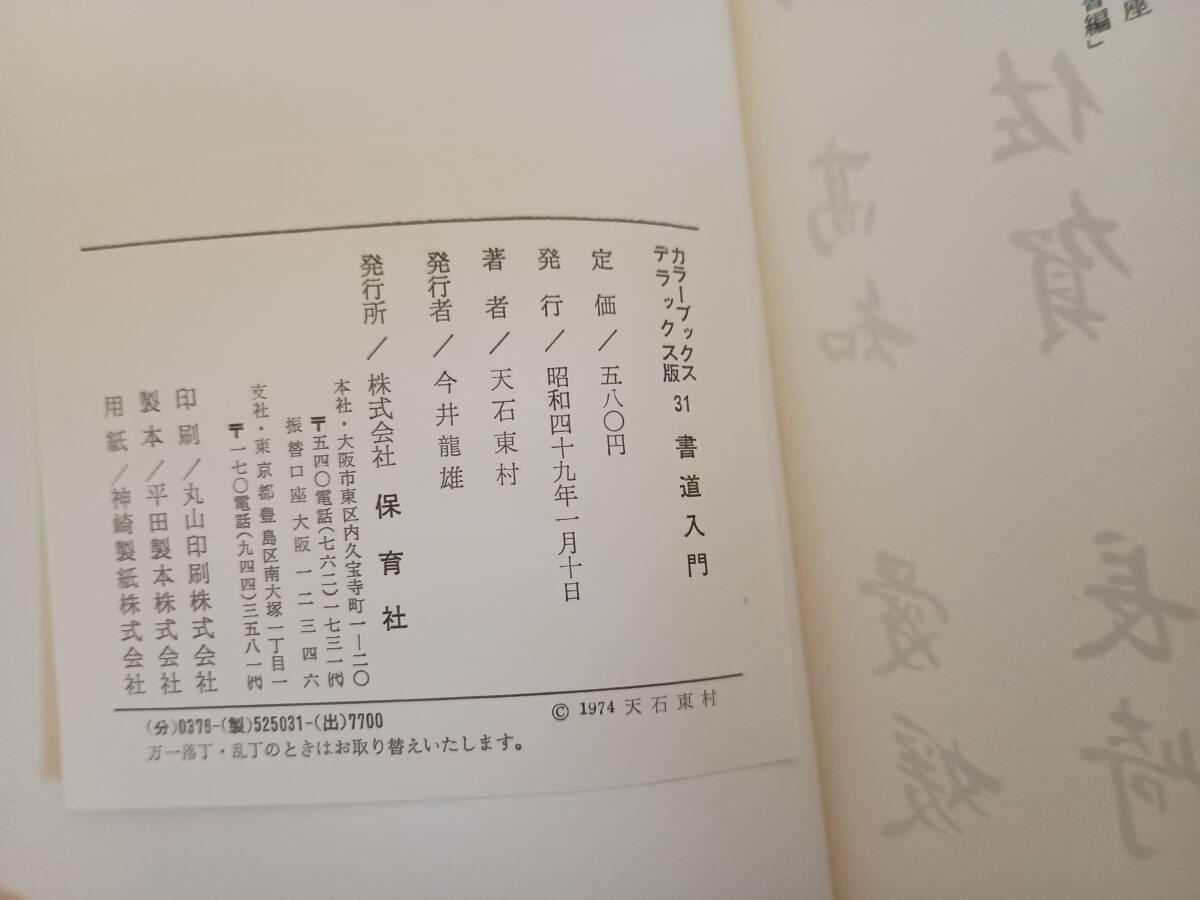 座
書編」
佐賀 長崎
高知 愛媛
カラーブックス
デラックス版 31 書道入門
定価/五八〇円
発行/昭和四十九年一月十日
著者/天石東村
発行者/今井龍雄
発行所/株式会社 保育社
本社・大阪市東区内久宝寺町一—二〇
〒五四〇電話(七六二)一七三一(代)
振替口座大阪一二三四六
支社・東京都豊島区南大塚一丁目一
〒一七〇電話(九四四)三五八一(代)
印刷/丸山印刷株式会社
製本/平田製本株式会社
用紙/神崎製紙株式会社
(分)0376-(製)525031-(出)7700
© 1974 天石東村
万一落丁・乱丁のときはお取り替えいたします。